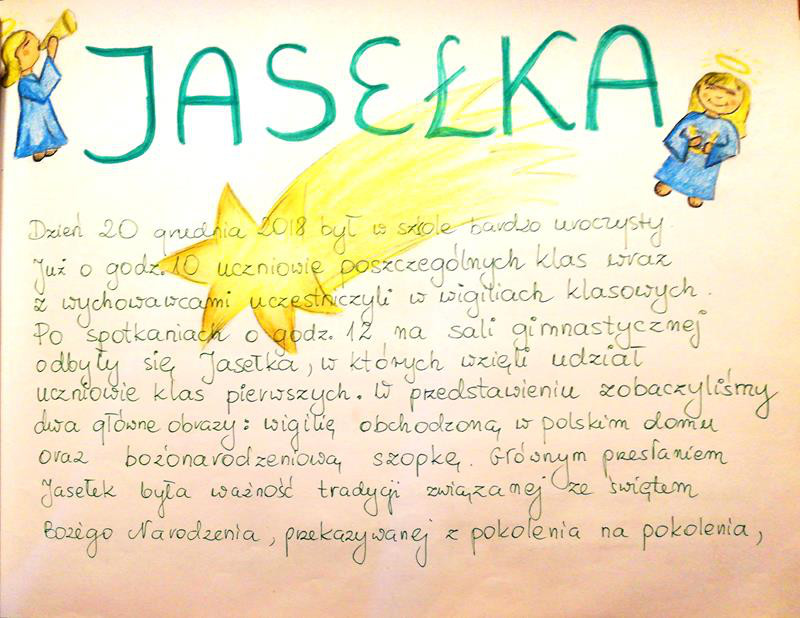 JASEŁKA
Dzień 20 grudnia 2018 był w szkole bardzo uroczysty.
Już o godz. 10 uczniowie poszczególnych klas wraz
z wychowawcami uczestniczyli w wigiliach klasowych.
Po spotkaniach o godz. 12 na sali gimnastycznej
odbyły się Jasełka, w których wzięli udział
uczniowie klas pierwszych. W przedstawieniu zobaczyliśmy
dwa główne obrazy: wigilię obchodzoną w polskim domu
oraz bożonarodzeniową szopkę. Głównym przesłaniem
Jasełek była ważność tradycji związanej ze świętem
Bożego Narodzenia, przekazywanej z pokolenia na pokolenia,